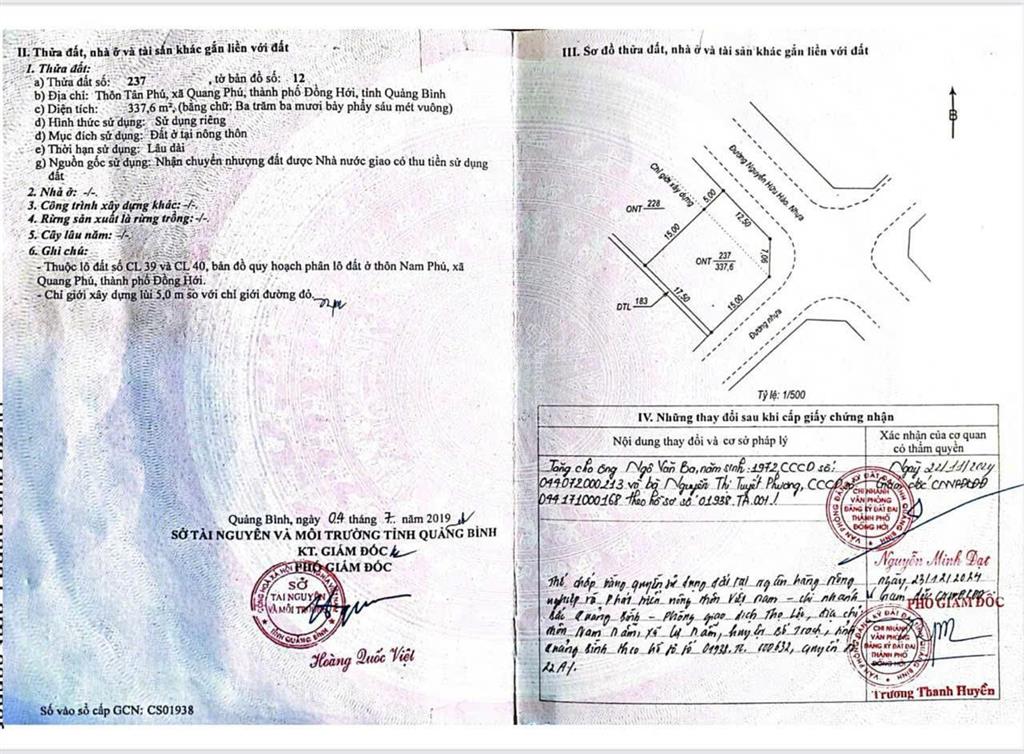 II. Thửa đất, nhà ở và tài sản khác gắn liền với đất
1. Thửa đất:
a) Thửa đất số: 237 , tờ bản đồ số: 12
b) Địa chỉ: Thôn Tân Phú, xã Quang Phú, thành phố Đồng Hới, tỉnh Quảng Bình
c) Diện tích: 337,6 m², (bằng chữ: Ba trăm ba mươi bảy phẩy sáu mét vuông)
d) Hình thức sử dụng: Sử dụng riêng
đ) Mục đích sử dụng: Đất ở tại nông thôn
e) Thời hạn sử dụng: Lâu dài
g) Nguồn gốc sử dụng: Nhận chuyển nhượng đất được Nhà nước giao có thu tiền sử dụng
đất
2. Nhà ở: -/-.
3. Công trình xây dựng khác: -/-.
4. Rừng sản xuất là rừng trồng: -/-.
5. Cây lâu năm: -/-.
6. Ghi chú:
- Thuộc lô đất số CL 39 và CL 40, bản đồ quy hoạch phân lô đất ở thôn Nam Phú, xã
Quang Phú, thành phố Đồng Hới.
- Chỉ giới xây dựng lùi 5,0 m so với chỉ giới đường đỏ.
Quảng Bình, ngày 04 tháng 7 năm 2019
SỞ TÀI NGUYÊN VÀ MÔI TRƯỜNG TỈNH QUẢNG BÌNH
KT. GIÁM ĐỐC
PHÓ GIÁM ĐỐC
SỞ
TÀI NGUYÊN
VÀ MÔI TRƯỜNG
TỈNH QUẢNG BÌNH
Hoàng Quốc Việt
Số vào sổ cấp GCN: CS01938
III. Sơ đồ thửa đất, nhà ở và tài sản khác gắn liền với đất
B
Đường Nguyễn Hữu Hào, Nhựa
Chỉ giới xây dựng
5.00
ONT 228
12.50
15.00
7.06
ONT 237
337,6
17.50
15.00
DTL 183
Đường nhựa
Tỷ lệ: 1/500
IV. Những thay đổi sau khi cấp giấy chứng nhận
Nội dung thay đổi và cơ sở pháp lý
Xác nhận của cơ quan
có thẩm quyền
Tặng cho ông Ngô Văn Ba, năm sinh: 1972, CCCD số:
044072000213 và bà Nguyễn Thị Tuyết Phương, CCCD
044171000168 theo hồ sơ số 01938.TA.001./
Ngày 22/11/2024
Giám đốc CNVPĐKĐĐ
CHI NHÁNH
VĂN PHÒNG
ĐĂNG KÝ ĐẤT ĐAI
THÀNH PHỐ
ĐỒNG HỚI
Nguyễn Minh Đạt
Thế chấp bằng quyền sử dụng đất tại ngân hàng Nông
nghiệp và Phát triển nông thôn Việt Nam - chi nhánh
Bắc Quảng Bình - Phòng giao dịch Thọ Lộc, địa chỉ
thôn Nam Nam, xã Lý Nam, huyện Bố Trạch, tỉnh
Quảng Bình theo hồ sơ số 01938. quyển số
22A./.
ngày 23/12/2024
PHÓ GIÁM ĐỐC
CHI NHÁNH
VĂN PHÒNG
ĐĂNG KÝ ĐẤT ĐAI
THÀNH PHỐ
ĐỒNG HỚI
Trương Thanh Huyền